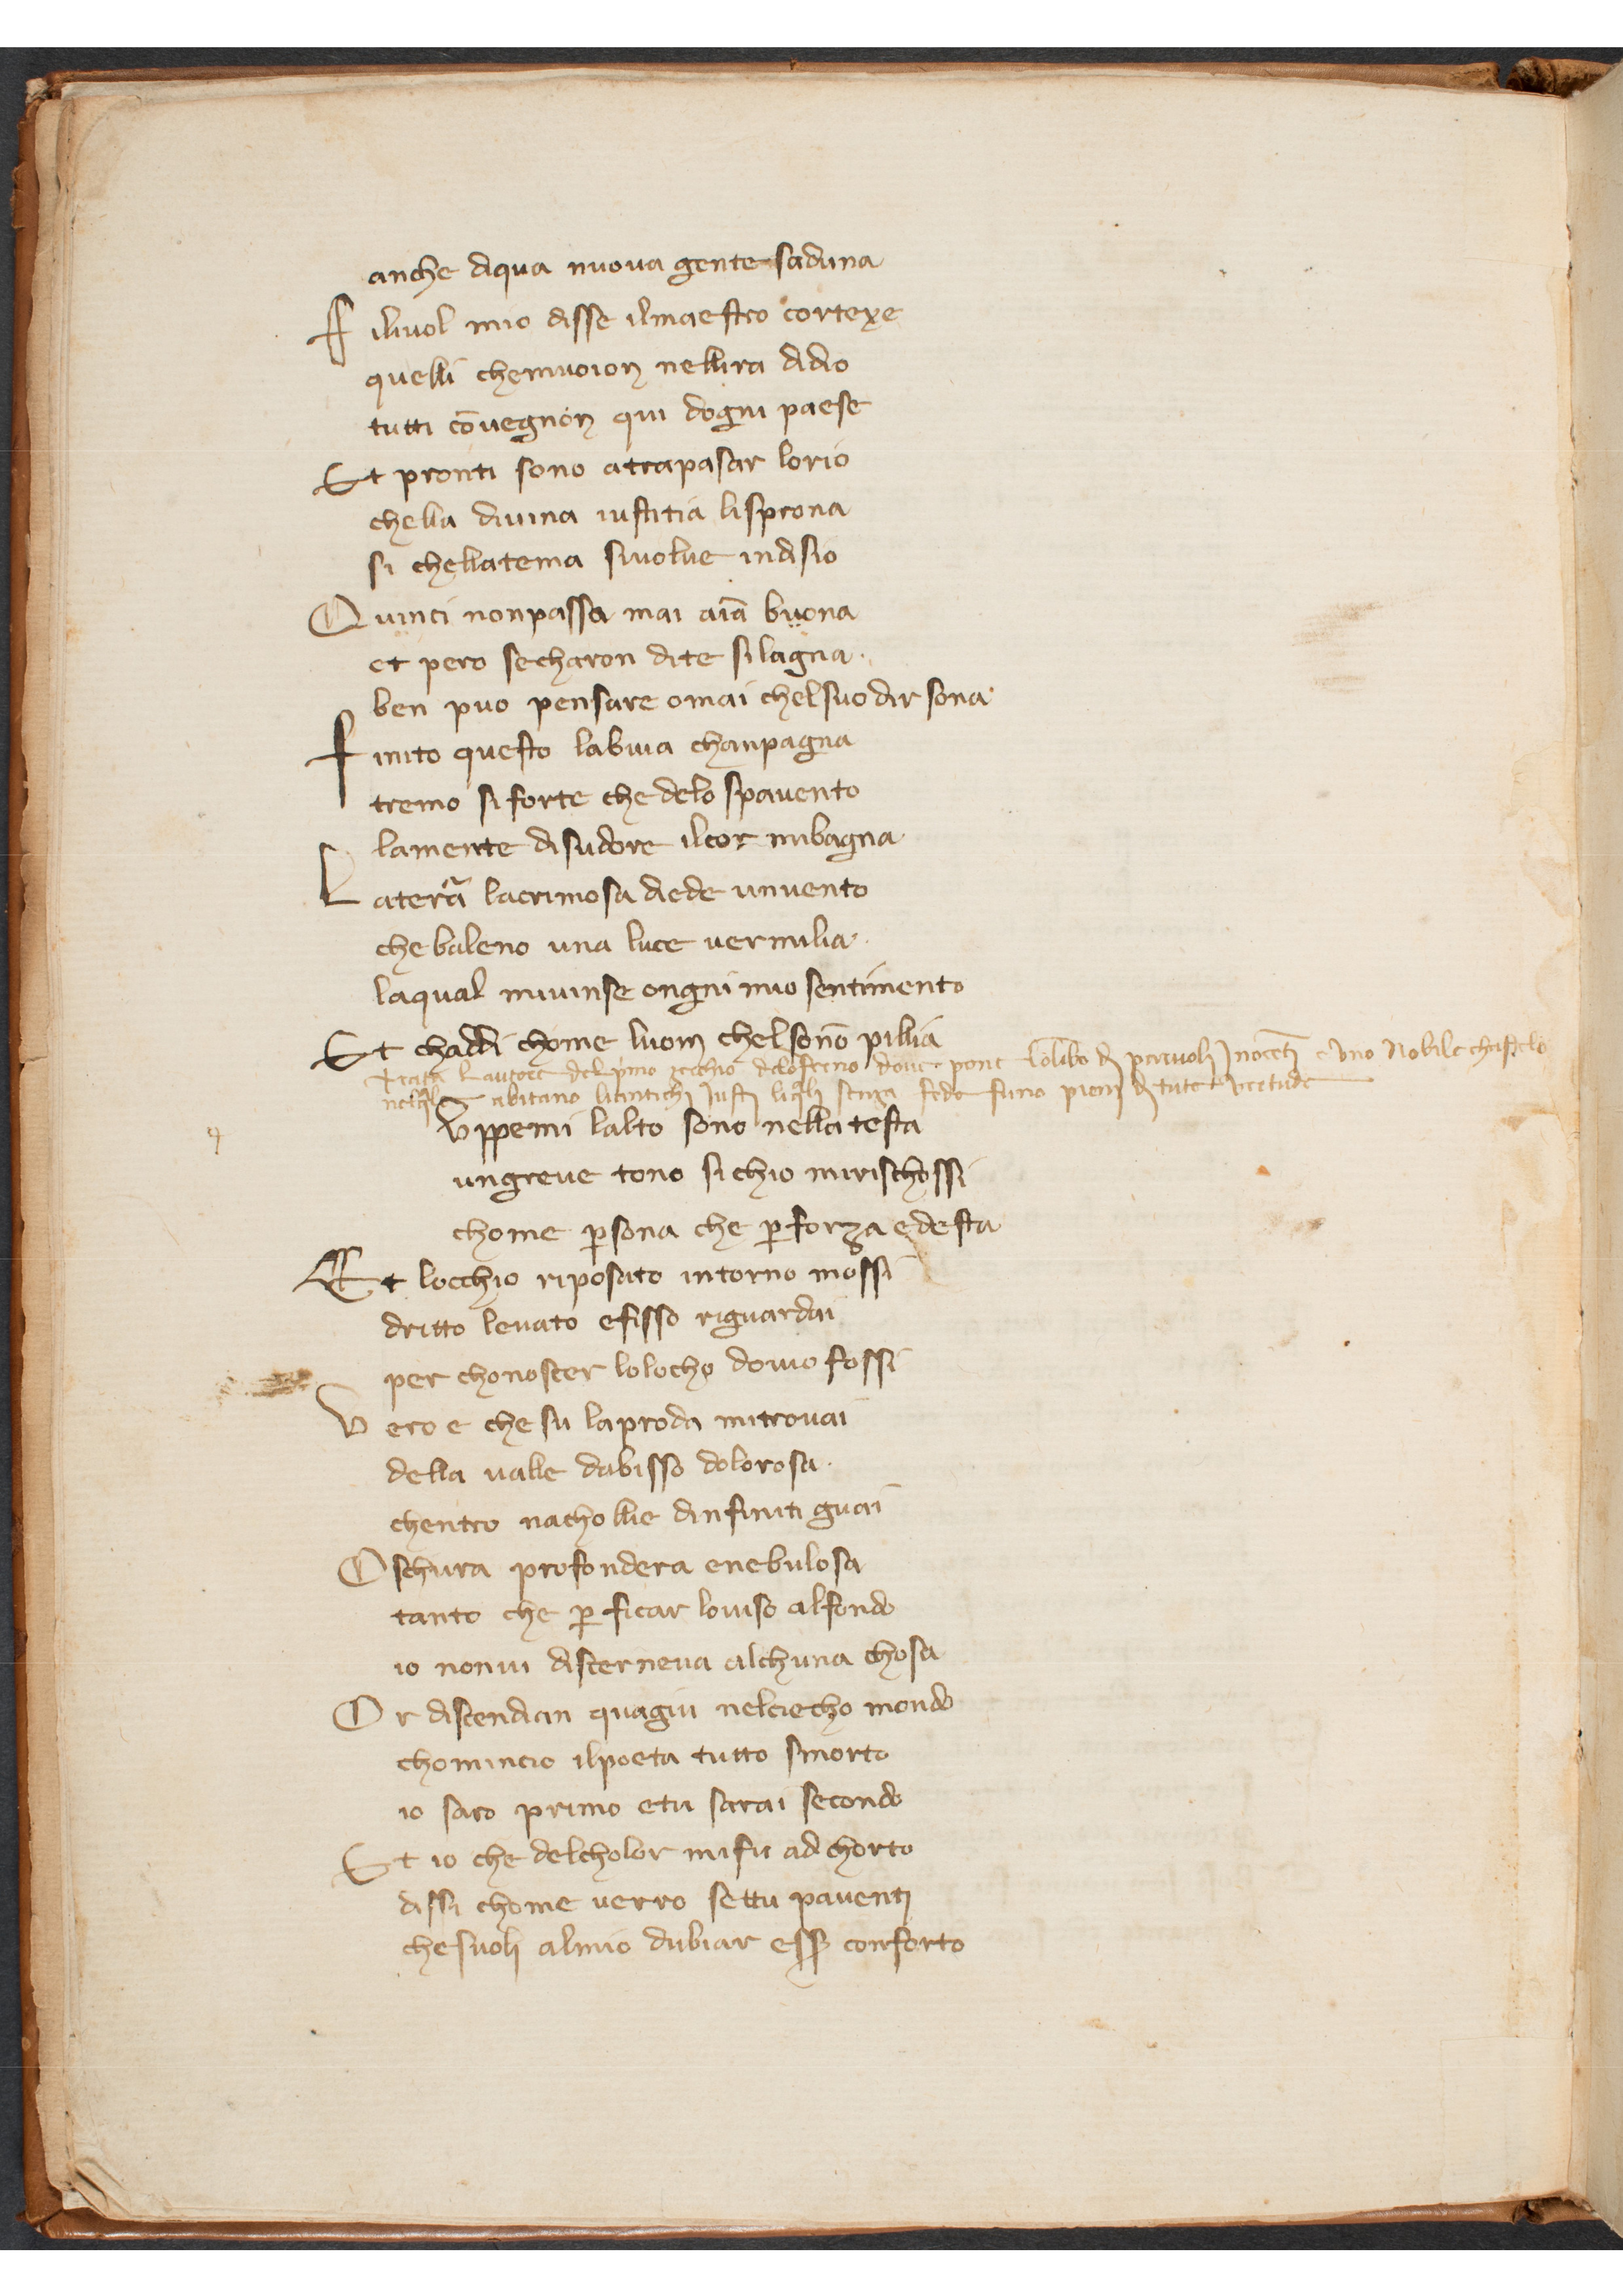 anche diqua nuova gente saduna
F iliuol mio disse ilmaestro cortexe
quelli chemuoion nellira didio
tutti cōuegnon qui dogni paese
Et pronti sono atrapasar lorio
chella diuina iustitia lisprona
si chellatema siuolue indisio
Quinci nonpassa mai aīa buona
et pero secharon dite silagna.
ben puo pensare omai chelsuo dir sona
f inito questo labuia chanpagna
tremo siforte che delo spauento
lamente disudore ilcor mibagna
L aterra lacrimosa diede unuento
chebaleno una luce vermilia.
laqual miuinse ongni mio sentimento
Et chaddi chome luom chelsonō pillia
Trata lautore del pimo cerchio delonferno doue pone lolibo d paruoli Inoceti e uno Nobile chastelo
neiqle abitano liantichi Justi liqli senza fede funo pieni d tute vertude
Vppemi lalto sono nella testa
ungreue tono sichio mirischossi
chome psona che pforza edesta
Et locchio riposato intorno mossi
dritto leuato efisso riguardai
per chonoscer lolocho douio fossi
V ero e che su laproda mitrouai
della ualle dabisso dolorosa.
chentro nachollie dinfiniti guai
Oschura profondera enebulosa
tanto che p ficar louiso alfondo
io nonui discerneua alchuna chosa
Or discendian quagiu nelciecho mondo
chomincio ilpoeta tutto smorto
io saro primo etu sarai secondo
Et io che delcholor mifu adchorto
dissi chome verro settu pauenti
chesuoli almio dubiar ess conforto